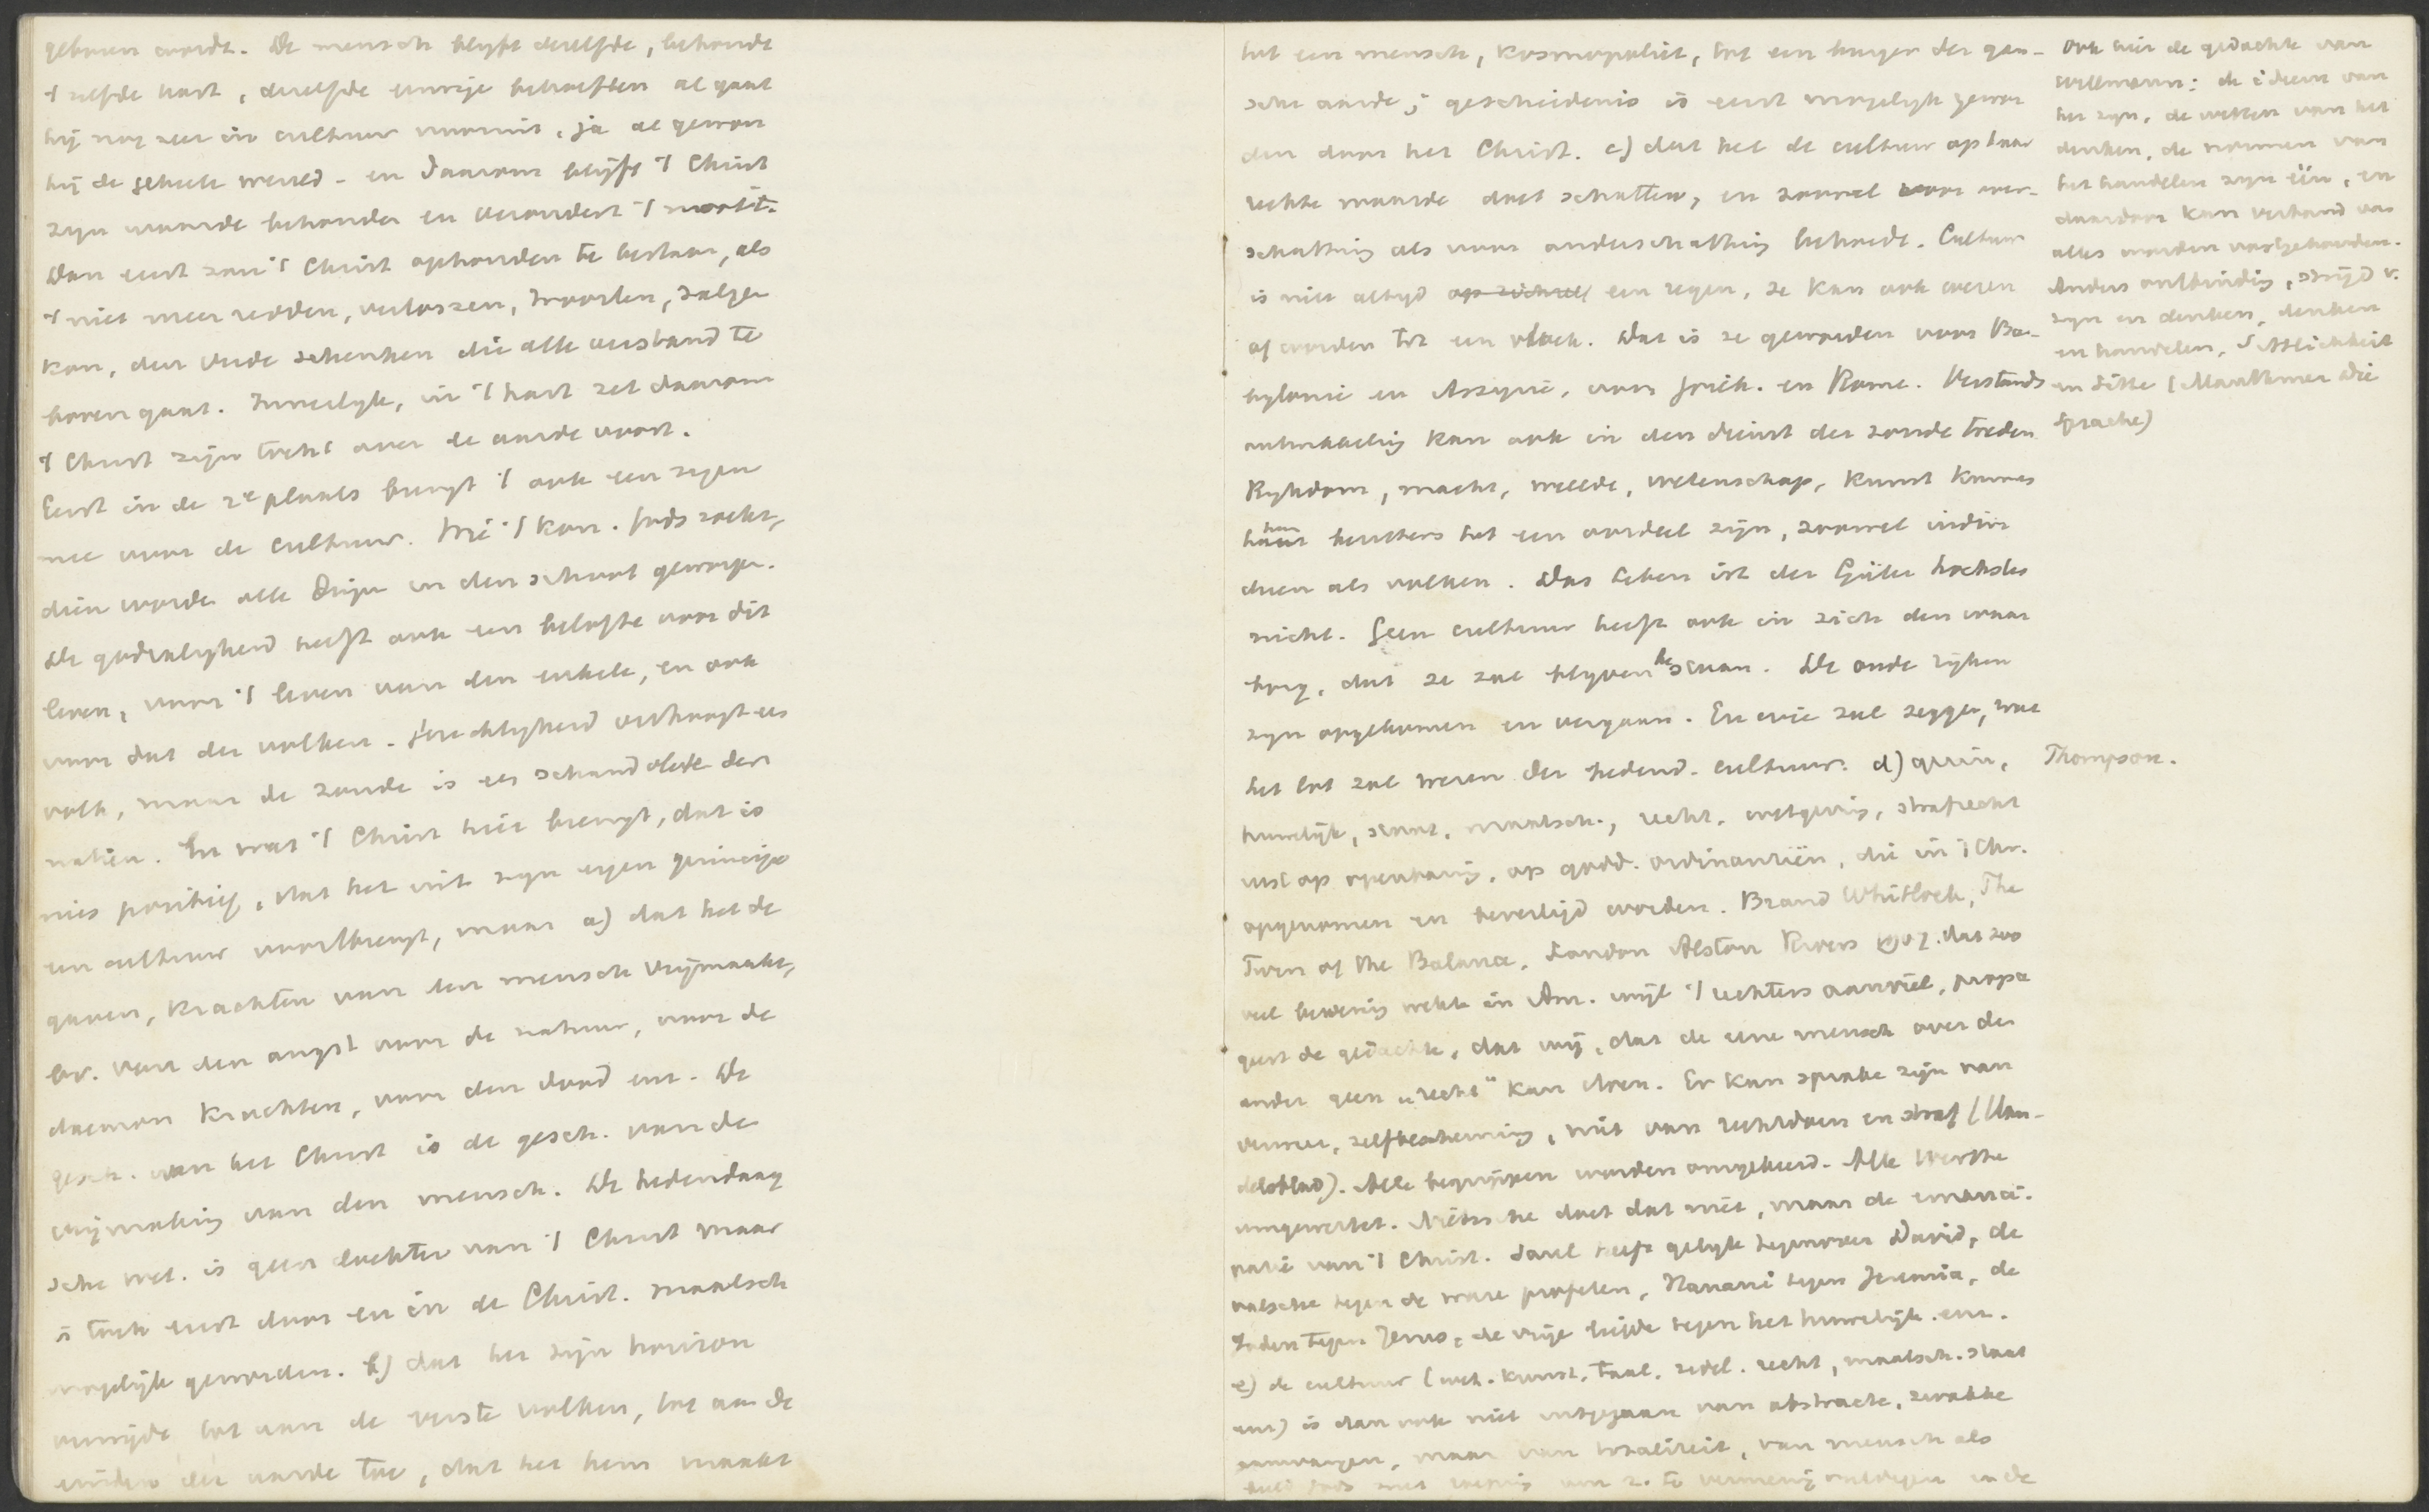 geboren wordt. De mensch blyft dezelfde, behoudt
't zelfde hart, dezelfde eeuwige behoeften al gaat
hij nog zeer in cultuur vooruit, ja al gewon
hij de geheele wereld - en daarom blijft 't Christ
zyn waarde behouden en verandert 't nooit.
Dan eerst zou 't Christ ophouden te bestaan, als
't niet meer redden, verlossen, troosten, zalige
kon, den vrede schenken die alle verstand te
boven gaat. Innerlyk, in 't hart zet daarom
't Christ zijn tocht over de aarde voort.
Eerst in de 2e plaats brengt 't ook een zegen
mee voor de cultuur. Wie 't kon. Gods zoekt,
dien worde alle dinge in den schoot geworpe.
De godzaligheid heeft ook een belofte voor dit
leven, voor 't leven van den enkele, en ook
voor dat der volken. Gerechtigheid verhoogt een
volk, maar de zonde is een schandvlek der
natien. En wat 't Christ hier brengt, dat is
niet positief, dat het uit zyn eigen principe
een cultuur voortbrengt, maar a) dat het de
gaven, krachten van den mensch vrijmaakt,
bv. van den angst voor de natuur, voor de
daemon krachten, voor den dood enz. De
gesch. van het Christ is de gesch. van de
vrijmaking van den mensch. De hedendaag
sche wet. is geen dochter van 't Christ maar
is toch eerst door en in de Christ. maatsch
mogelijk geworden. b) dat het zijn horizon
verwijde tot aan de verste volken, tot aan de
einden der aarde toe, dat het hem maakt
tot een mensch, kosmopoliet, tot een burger der gan-
sche aarde; geschiedenis is eerst mogelyk gewor
den door het Christ. c) dat het de cultuur op haar
rechte waarde doet schatten, en zoowel voor over-
schatting als voor onderschatting behoedt. Cultuur
is niet altyd op zichzelf een zegen, ze kan ook wezen
of worden tot een vloek. Dat is ze geworden voor Ba-
bylonie en Assyrie, voor Griek. en Rome. Verstands
ontwikkeling kan ook in den dienst der zonde treden
Rykdom, macht, weelde, wetenschap, kunst kunnen
hun bezitters tot een oordeel zijn, zoowel indivi
duen als volken. Das Leben ist der Güter höchstes
nicht. Geen cultuur heeft ook in zich den waar
borg, dat ze zal blyven bestaan. De oude ryken
zyn opgekomen en vergaan. En wie zal zeggen, wat
het lot zal wezen der hedend. cultuur. d) gezin,
huwelijk, staat, maatsch., recht, wetgeving, strafrecht
rust op openbaring, op godd. ordinantiën, die in 't Chr.
opgenomen en bevestigd worden. Brand Whitlock, The
Turn of the Balance, London Alston Rivers 1907. dat zoo
veel beweging wekte in Am. wijl 't rechters aanviel, propa
geert de gedachte, dat wij, dat de eene mensch over den
ander geen "recht" kan doen. Er kan sprake zijn van
verweer, zelfbescherming, niet van rechtdoen en straf (Han-
delsblad). Alle begrippen worden omgekeerd. Alle Werthe
umgewertet. Nietzsche doet dat niet, maar de emanci-
patie van 't Christ. Saul heeft gelyk tegenover David, de
valsche tegen de ware profeten, Hanani tegen Jeremia, de
Joden tegen Jezus, de vrije liefde tegen het huwelijk. enz.
e) de cultuur (wet. kunst, taal, zedel. recht, maatsch. staat
enz) is dan ook niet uitgegaan van abstracte, zwakke
aanvangen, maar van totaliteit, van mensch als
beeld Gods
Ook hier de gedachte van
Willmann: de ideeen van
het zyn, de wetten van het
denken, de normen van
het handelen zyn één, en
daardoor kan verband van
alles worden vastgehouden.
Anders ontbinding, strijd v.
zyn en denken, denken
en handelen, Sittlichkeit
en Sitte (Mauthner Die
Sprache)
Thompson.